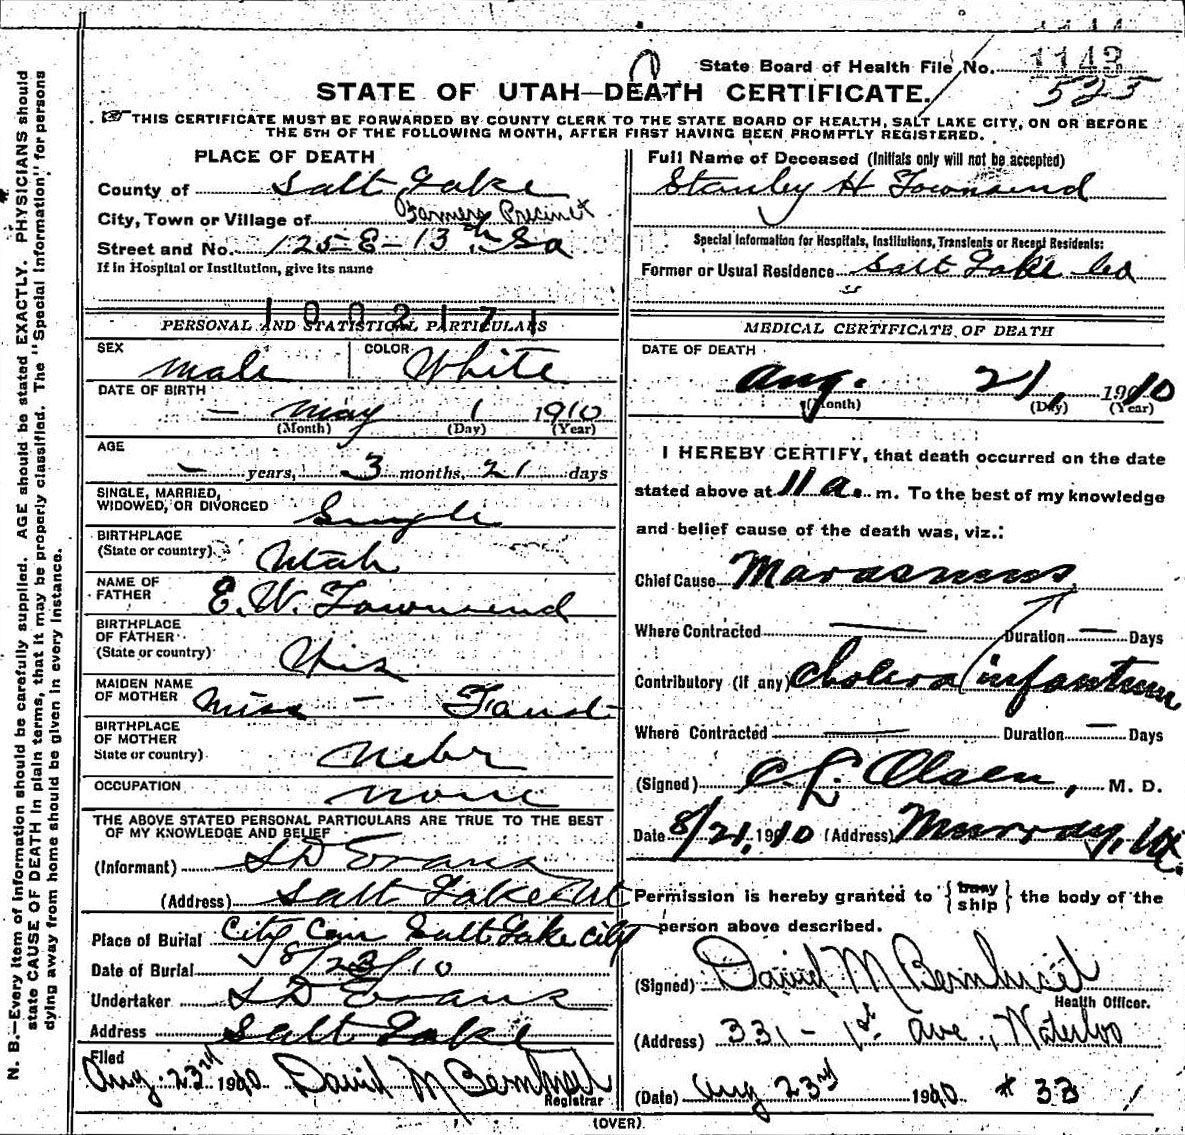 1143
State Board of Health File No.
525
STATE OF UTAH—DEATH CERTIFICATE.
THIS CERTIFICATE MUST BE FORWARDED BY COUNTY CLERK TO THE STATE BOARD OF HEALTH, SALT LAKE CITY, ON OR BEFORE
THE 5TH OF THE FOLLOWING MONTH, AFTER FIRST HAVING BEEN PROMPTLY REGISTERED.
PLACE OF DEATH
County of Salt Lake
City, Town or Village of Farmers Precinct
Street and No. 125 E - 13th So
If in Hospital or Institution, give its name
1002171
PERSONAL AND STATISTICAL PARTICULARS
SEX Male COLOR White
DATE OF BIRTH
— May 1 1910
(Month) (Day) (Year)
AGE
— years, 3 months, 21 days
SINGLE, MARRIED,
WIDOWED, OR DIVORCED Single
BIRTHPLACE
(State or country) Utah
NAME OF
FATHER E. W. Townsend
BIRTHPLACE
OF FATHER
(State or country) Wis
MAIDEN NAME
OF MOTHER Miss — Faust
BIRTHPLACE
OF MOTHER
State or country) Nebr
OCCUPATION none
THE ABOVE STATED PERSONAL PARTICULARS ARE TRUE TO THE BEST
OF MY KNOWLEDGE AND BELIEF
(Informant) S D Evans
(Address) Salt Lake Ut
Place of Burial City Cem Salt Lake City
Date of Burial 8/23/10
Undertaker S D Evans
Address Salt Lake
Filed
Aug. 23rd 1910 David M
Registrar
Full Name of Deceased (Initials only will not be accepted)
Stanley H Townsend
Special Information for Hospitals, Institutions, Transients or Recent Residents:
Former or Usual Residence Salt Lake Co
MEDICAL CERTIFICATE OF DEATH
DATE OF DEATH
Aug. 21, 1910
(Month) (Day) (Year)
I HEREBY CERTIFY, that death occurred on the date
stated above at 11 a. m. To the best of my knowledge
and belief cause of the death was, viz.:
Chief Cause Marasmus
Where Contracted — Duration — Days
Contributory (if any) Cholera infantum
Where Contracted — Duration — Days
(Signed) C L Olsen, M. D.
Date 8/21, 1910 (Address) Murray, Ut.
Permission is hereby granted to {bury ship} the body of the
person above described.
(Signed) David M
Health Officer.
(Address) 331 - 1st Ave., Waterloo
(Date) Aug 23rd 1910 * 33
(OVER)
N. B.—Every item of information should be carefully supplied. AGE should be stated EXACTLY. PHYSICIANS should
state CAUSE OF DEATH in plain terms, that it may be properly classified. The "Special Information" for persons
dying away from home should be given in every instance.